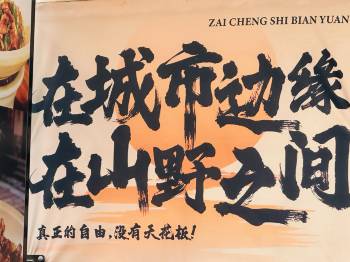 ZAI CHENG SHI BIAN YUAN
在城市边缘
在山野之间
真正的自由,没有天花板!